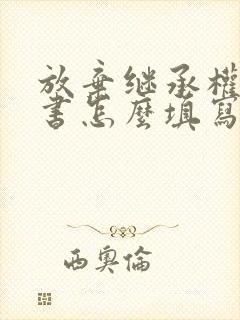 放棄继承權
書怎麼填寫
西奧倫